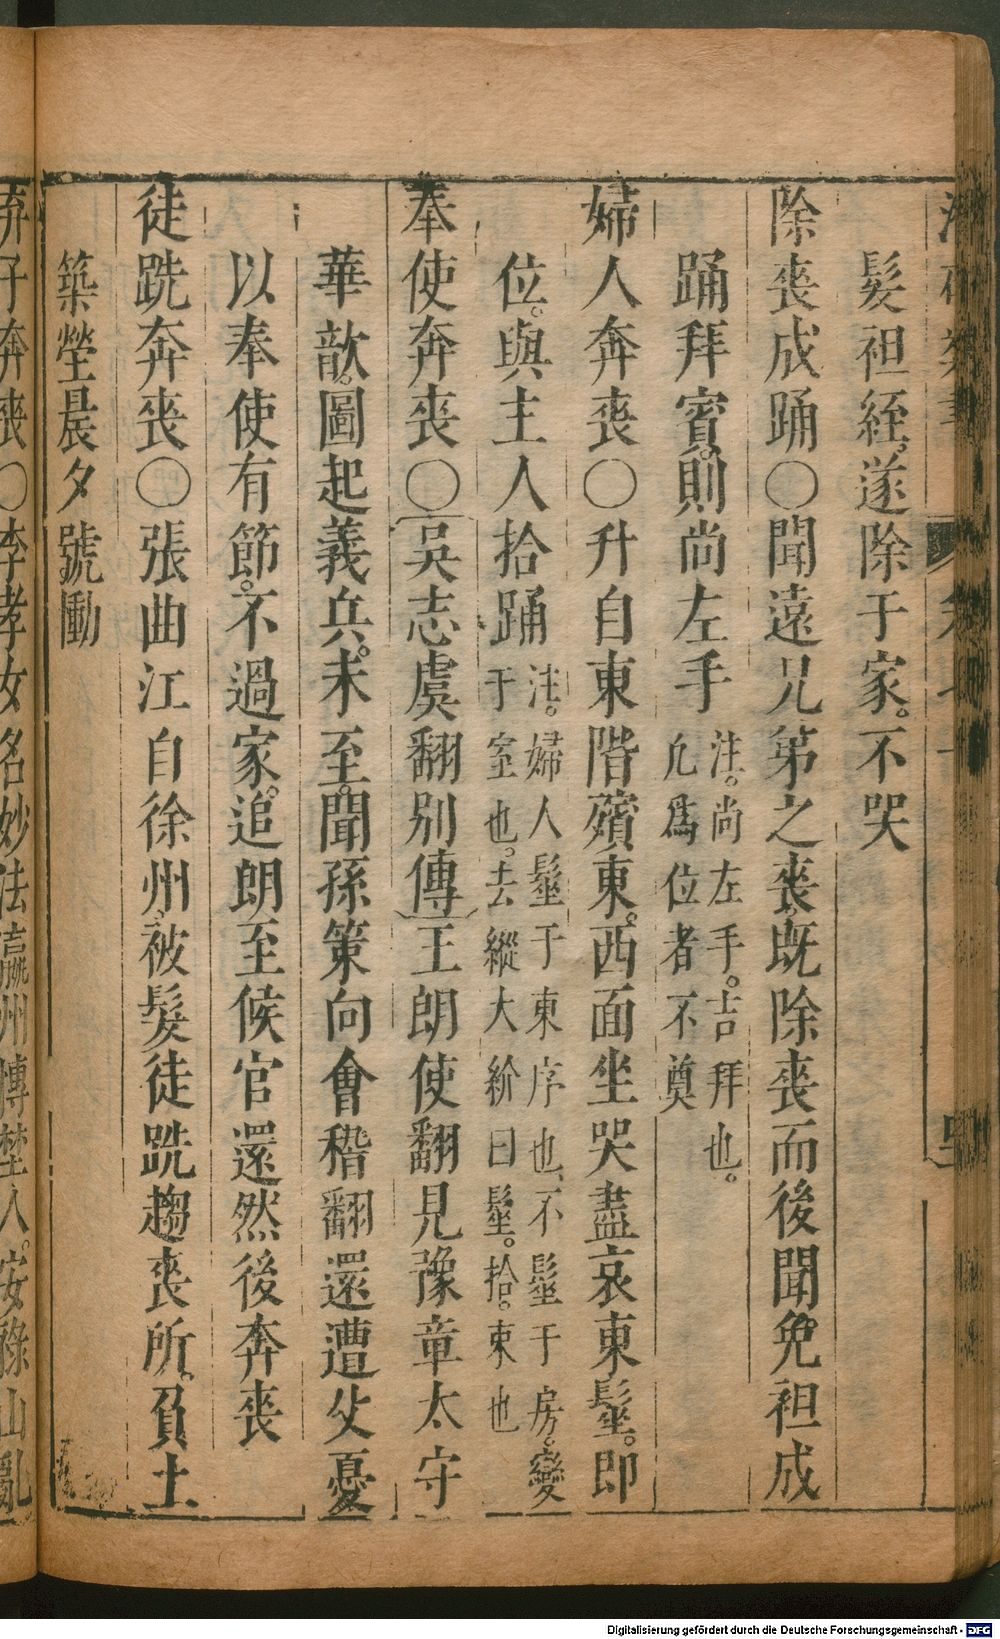 髮袒絰遂除于家不哭
除喪成踊○聞遠兄第之喪既除喪而後聞免袒成
踊拜賓則尚左手注尚左手吉拜也
凢爲位者不奠
婦人奔喪○升自東階殯東西面坐哭盡哀東髽即
位與主人拾踊注婦人髽于東序也不髽于房變
于室也去縱大紒曰髽拾束也
奉使奔喪○吳志虞翻別傳王朗使翻見豫章太守
華歆圖起義兵未至聞孫策向會稽翻還遭父憂
以奉使有節不過家追朗至候官還然後奔喪
徒跣奔喪○張曲江自徐州被髮徒跣趨喪所負土
築塋晨夕號慟
弃子奔喪○李孝女名妙法瀛州博埜人安祿山亂
Digitalisierung gefördert durch die Deutsche Forschungsgemeinschaft - DFG